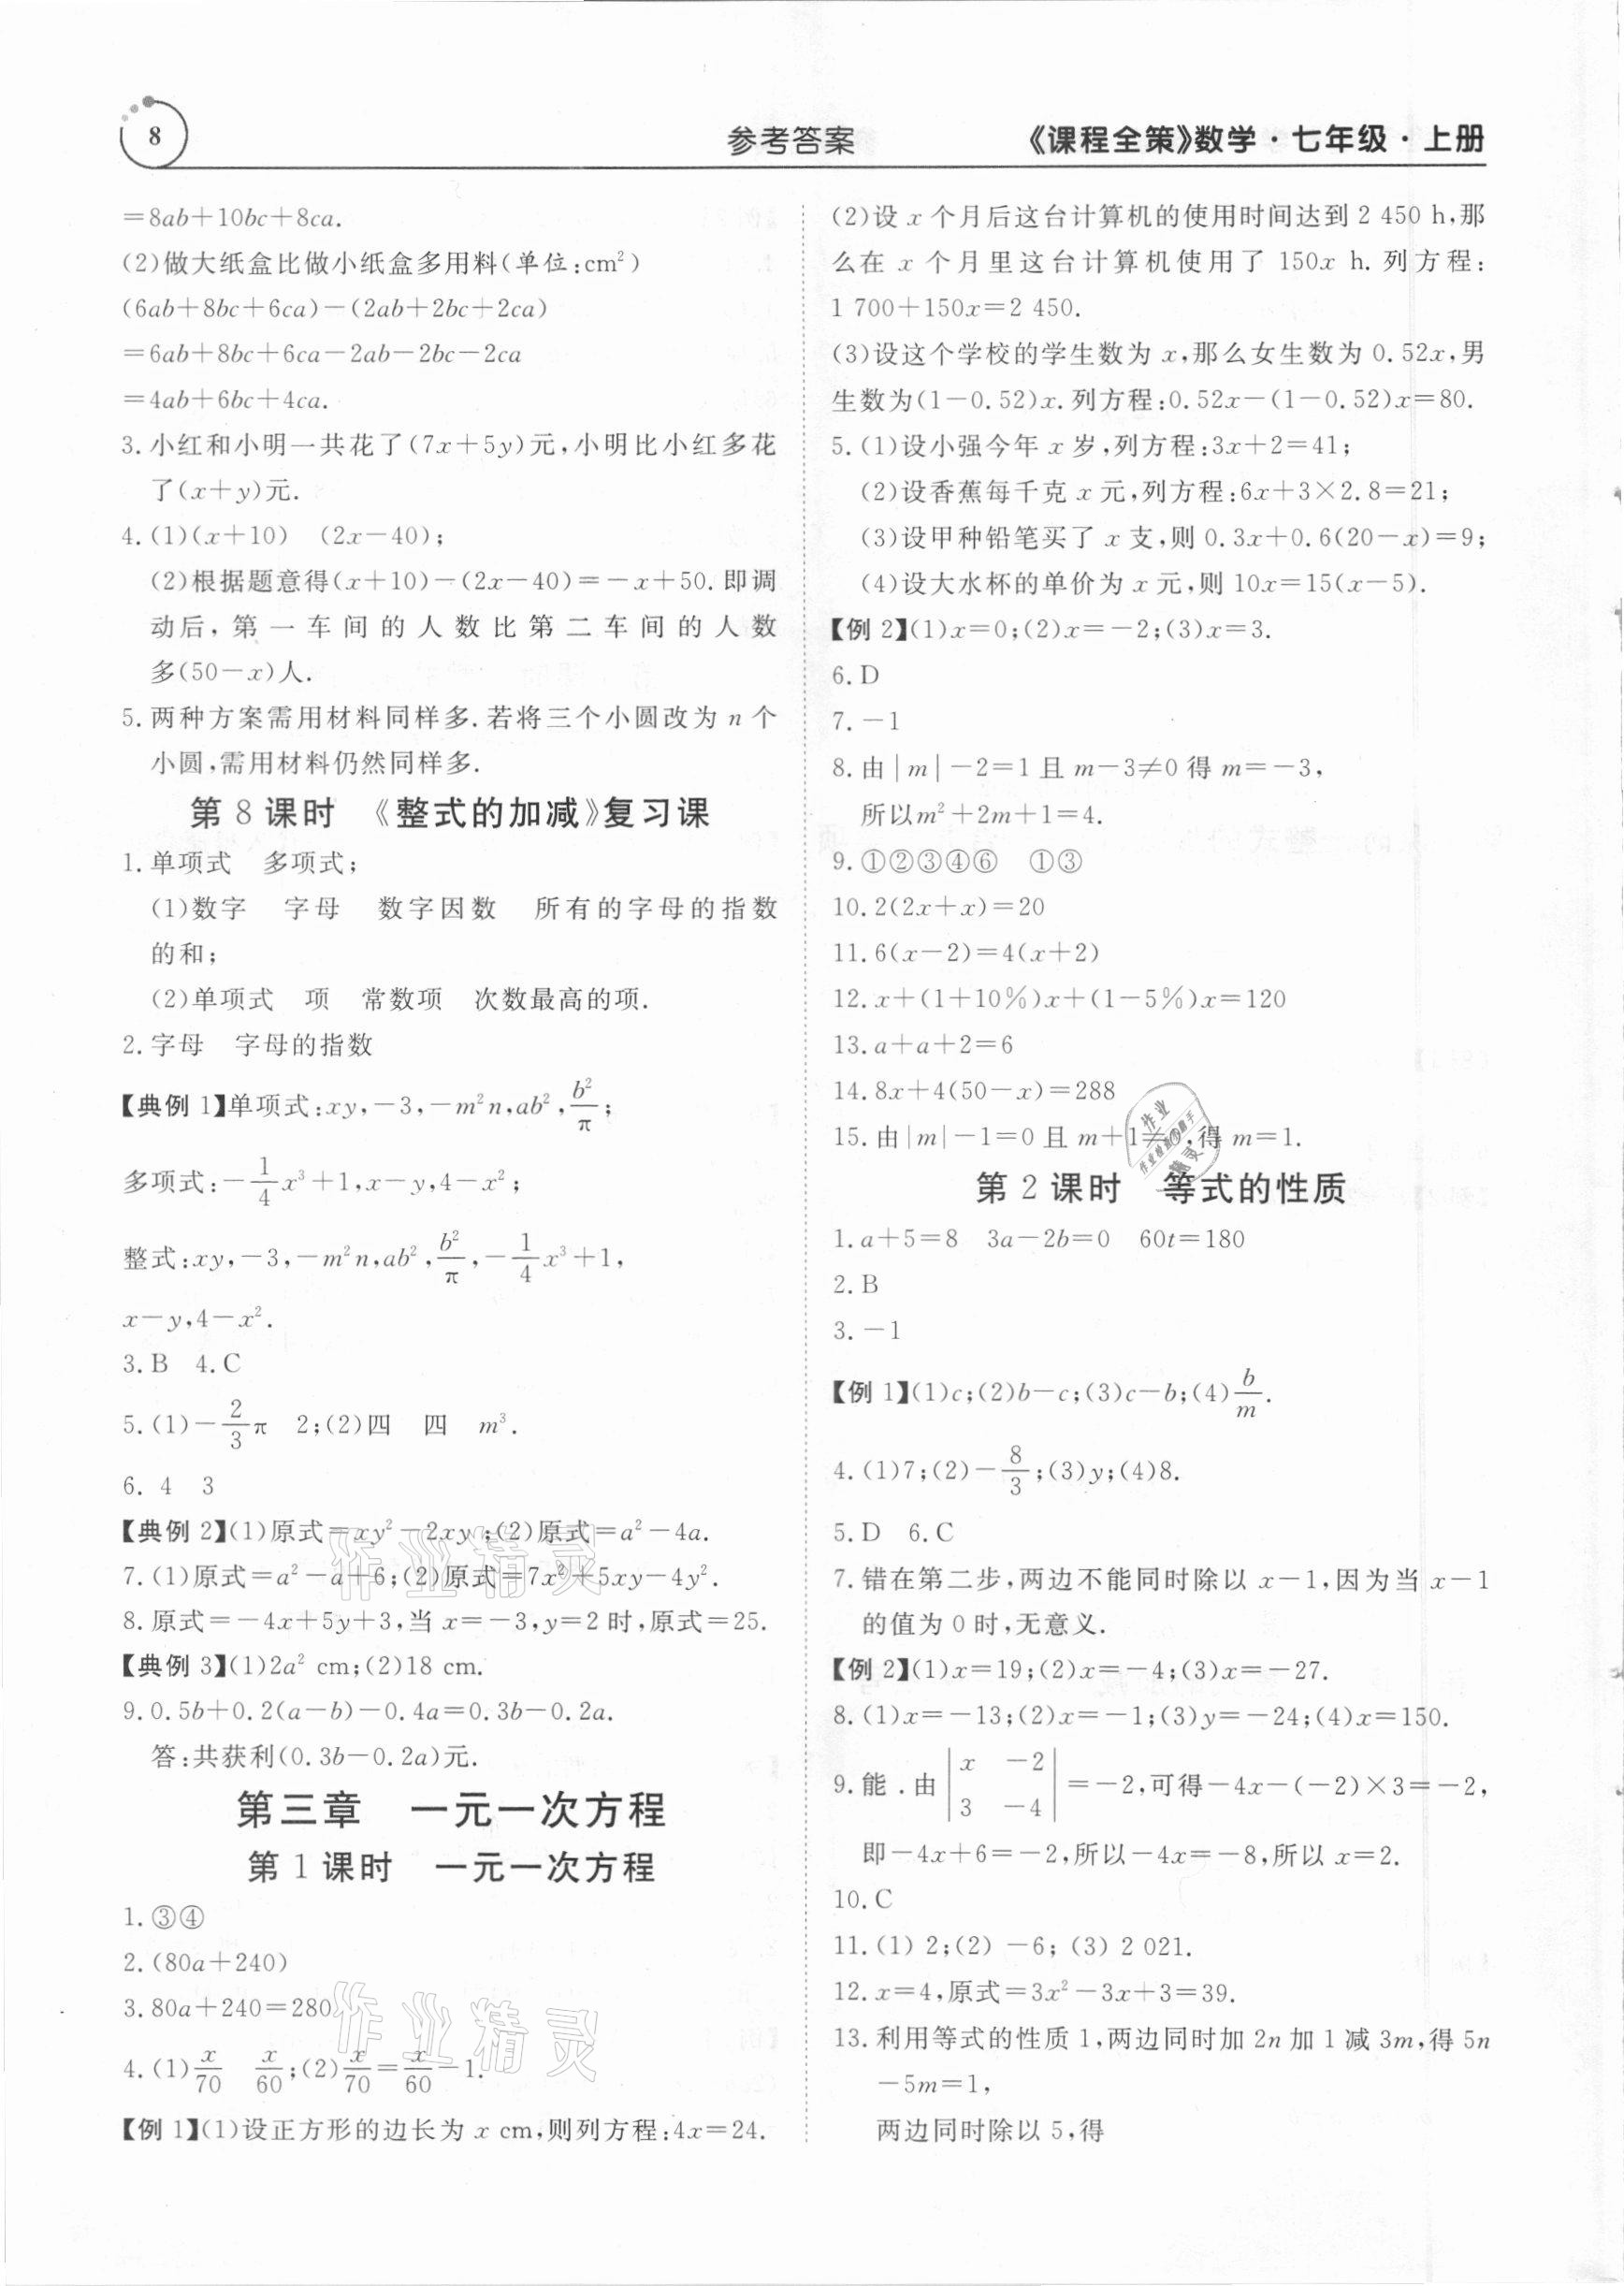 8
参考答案
《课程全策》数学·七年级·上册
=8ab+10bc+8ca.
(2)做大纸盒比做小纸盒多用料(单位:cm²)
(6ab+8bc+6ca)-(2ab+2bc+2ca)
=6ab+8bc+6ca-2ab-2bc-2ca
=4ab+6bc+4ca.
3.小红和小明一共花了(7x+5y)元,小明比小红多花
了(x+y)元.
4.(1)(x+10) (2x-40);
(2)根据题意得(x+10)-(2x-40)=-x+50.即调
动后,第一车间的人数比第二车间的人数
多(50-x)人.
5.两种方案需用材料同样多.若将三个小圆改为 n 个
小圆,需用材料仍然同样多.
第 8 课时 《整式的加减》复习课
1.单项式 多项式;
(1)数字 字母 数字因数 所有的字母的指数
的和;
(2)单项式 项 常数项 次数最高的项.
2.字母 字母的指数
【典例 1】单项式:xy,-3,-m²n,ab²,b²/π;
多项式:-1/4x³+1,x-y,4-x²;
整式:xy,-3,-m²n,ab²,b²/π,-1/4x³+1,
x-y,4-x².
3.B 4.C
5.(1)-2/3π 2;(2)四 四 m³.
6. 4 3
【典例 2】(1)原式=xy²-2xy;(2)原式=a²-4a.
7.(1)原式=a²-a+6;(2)原式=7x²+5xy-4y².
8.原式=-4x+5y+3,当 x=-3,y=2 时,原式=25.
【典例 3】(1)2a² cm;(2)18 cm.
9.0.5b+0.2(a-b)-0.4a=0.3b-0.2a.
答:共获利(0.3b-0.2a)元.
第三章 一元一次方程
第 1 课时 一元一次方程
1.③④
2.(80a+240)
3.80a+240=280
4.(1)x/70 x/60;(2)x/70=x/60-1.
【例 1】(1)设正方形的边长为 x cm,则列方程:4x=24.
(2)设 x 个月后这台计算机的使用时间达到 2 450 h,那
么在 x 个月里这台计算机使用了 150x h.列方程:
1 700+150x=2 450.
(3)设这个学校的学生数为 x,那么女生数为 0.52x,男
生数为(1-0.52)x.列方程:0.52x-(1-0.52)x=80.
5.(1)设小强今年 x 岁,列方程:3x+2=41;
(2)设香蕉每千克 x 元,列方程:6x+3×2.8=21;
(3)设甲种铅笔买了 x 支,则 0.3x+0.6(20-x)=9;
(4)设大水杯的单价为 x 元,则 10x=15(x-5).
【例 2】(1)x=0;(2)x=-2;(3)x=3.
6.D
7.-1
8.由|m|-2=1 且 m-3≠0 得 m=-3,
所以m²+2m+1=4.
9.①②③④⑥ ①③
10.2(2x+x)=20
11.6(x-2)=4(x+2)
12.x+(1+10%)x+(1-5%)x=120
13.a+a+2=6
14.8x+4(50-x)=288
15.由|m|-1=0 且 m+1≠0,得 m=1.
第 2 课时 等式的性质
1.a+5=8 3a-2b=0 60t=180
2.B
3.-1
【例 1】(1)c;(2)b-c;(3)c-b;(4)b/m.
4.(1)7;(2)-8/3;(3)y;(4)8.
5.D 6.C
7.错在第二步,两边不能同时除以 x-1,因为当 x-1
的值为 0 时,无意义.
【例 2】(1)x=19;(2)x=-4;(3)x=-27.
8.(1)x=-13;(2)x=-1;(3)y=-24;(4)x=150.
9.能.由|x -2; 3 -4|=-2,可得-4x-(-2)×3=-2,
即-4x+6=-2,所以-4x=-8,所以 x=2.
10.C
11.(1) 2;(2) -6; (3) 2 021.
12.x=4,原式=3x²-3x+3=39.
13.利用等式的性质 1,两边同时加 2n 加 1 减 3m,得 5n
-5m=1,
两边同时除以 5,得
作业精灵
作业精灵